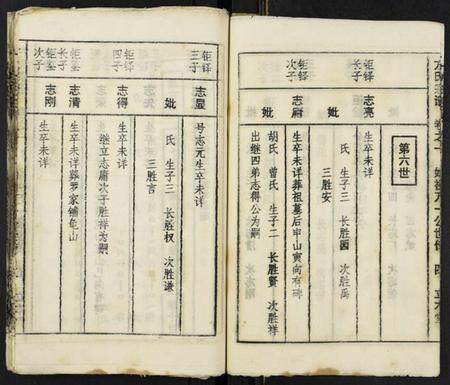 第六世
钜铎
长子
志亮
生卒未详
妣
氏 生子三 长胜国 次胜禹
三胜安
钜铎
次子
志庸
生卒未详葬祖墓后申山寅向有碑
妣
胡氏 曾氏 生子二 长胜贤 次胜祥
出继四弟志得公为嗣
钜铎
三子
志显
号志元生卒未详
妣
氏 生子三 长胜权 次胜谦
三胜言
钜铎
四子
志得
生卒未详
继立志庸次子胜祥为嗣
长子
志清
生卒未详葬罗家铺龟山
次子
志刚
生卒未详